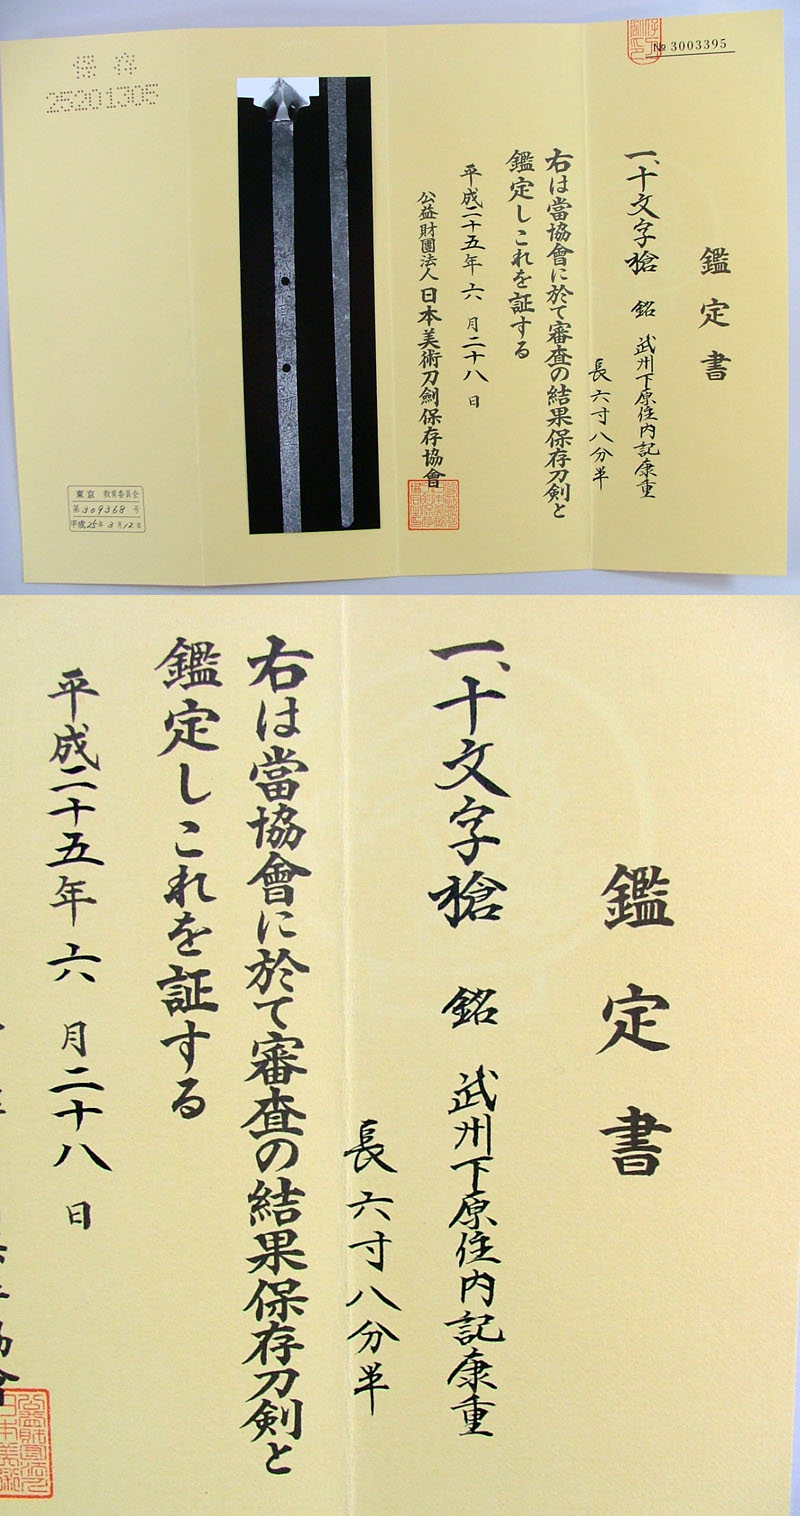 № 3003395
鑑定書
一、十文字槍 銘 武州下原住内記康重
長六寸八分半
右は當協會に於て審査の結果保存刀剣と
鑑定しこれを証する
平成二十五年六月二十八日
公益財團法人日本美術刀劍保存協會
保存
25201305
東京 教育委員会
第309368号
平成25年3月12日
鑑定書
一、十文字槍 銘 武州下原住内記康重
長六寸八分半
右は當協會に於て審査の結果保存刀剣と
鑑定しこれを証する
平成二十五年六月二十八日